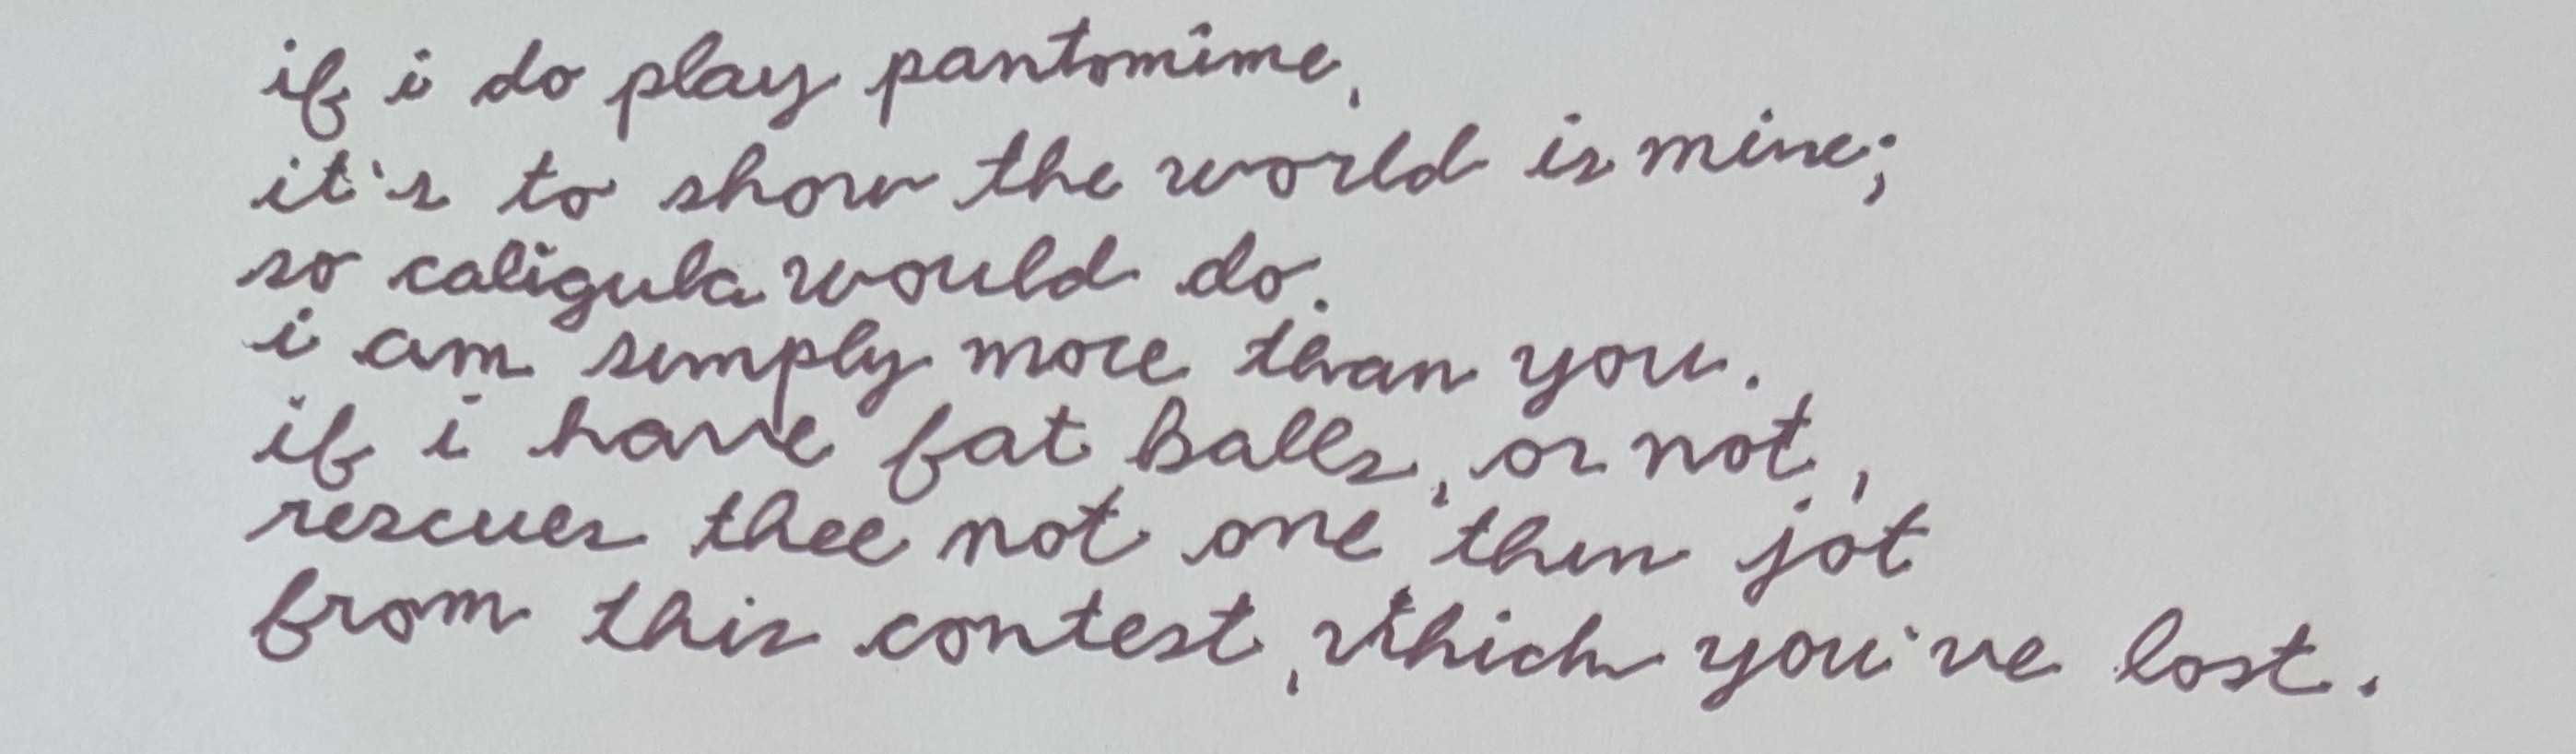 if i do play pantomime,
it's to show the world is mine;
so caligula would do.
i am simply more than you.
if i have fat balls, or not,
rescues thee not one then jot
from this contest, which you've lost.